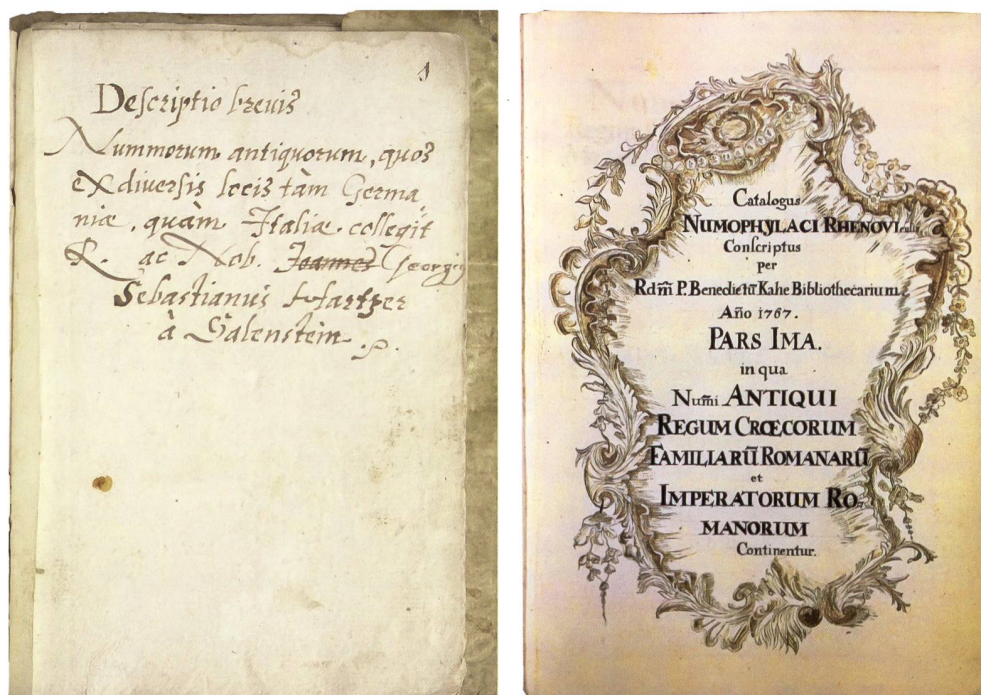 1
Descriptio brevis
Nummorum antiquorum, quos
ex diversis locis tàm Germa,
niæ, quàm Italiæ collegit
R. ac Nob. Joannes Georgius
Sebastianus Hartzer
à Salenstein.
Catalogus
NUMOPHYLACI RHENOVI
Conscriptus
per
Rdm̃ P. Benedictũ Kahe Bibliothecarium.
Año 1767.
PARS IMA.
in qua
Num̃i ANTIQUI
REGUM CRŒCORUM
FAMILIARŨ ROMANARŨ
et
IMPERATORUM RO-
MANORUM
Continentur.